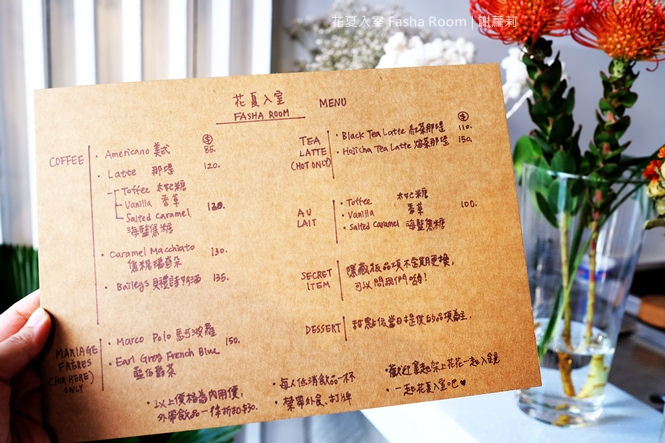 花夏入室 Fasha Room | 謝蘿莉
花夏入室 MENU
FASHA ROOM
COFFEE
$
Americano 美式 85.
Latte 那堤 120.
Toffee 太妃糖
Vanilla 香草 130.
Salted Caramel
海鹽焦糖
Caramel Macchiato 130.
焦糖瑪奇朵
Baileys 貝禮詩奶酒 135.
MARIAGE
FRÈRES
(FOR HERE)
ONLY
Marco Polo 馬可波羅 150.
Earl Grey French Blue
藍伯爵茶
以上價格為內用價,
外帶飲品一律折扣$30.
TEA
LATTE
(HOT ONLY)
$
Black Tea Latte 紅茶那堤 110.
Hojicha Tea Latte 焙茶那堤 150.
AU
LAIT
Toffee 太妃糖
Vanilla 香草 100.
Salted Caramel 海鹽焦糖
SECRET
ITEM
隱藏版品項不定期更換,
可以問我們喲!
DESSERT
甜點依當日提供的品項為主.
每人低消飲品一杯
禁帶外食、打牌
歡迎 你上花花一起入鏡
一起花夏入室吧♥